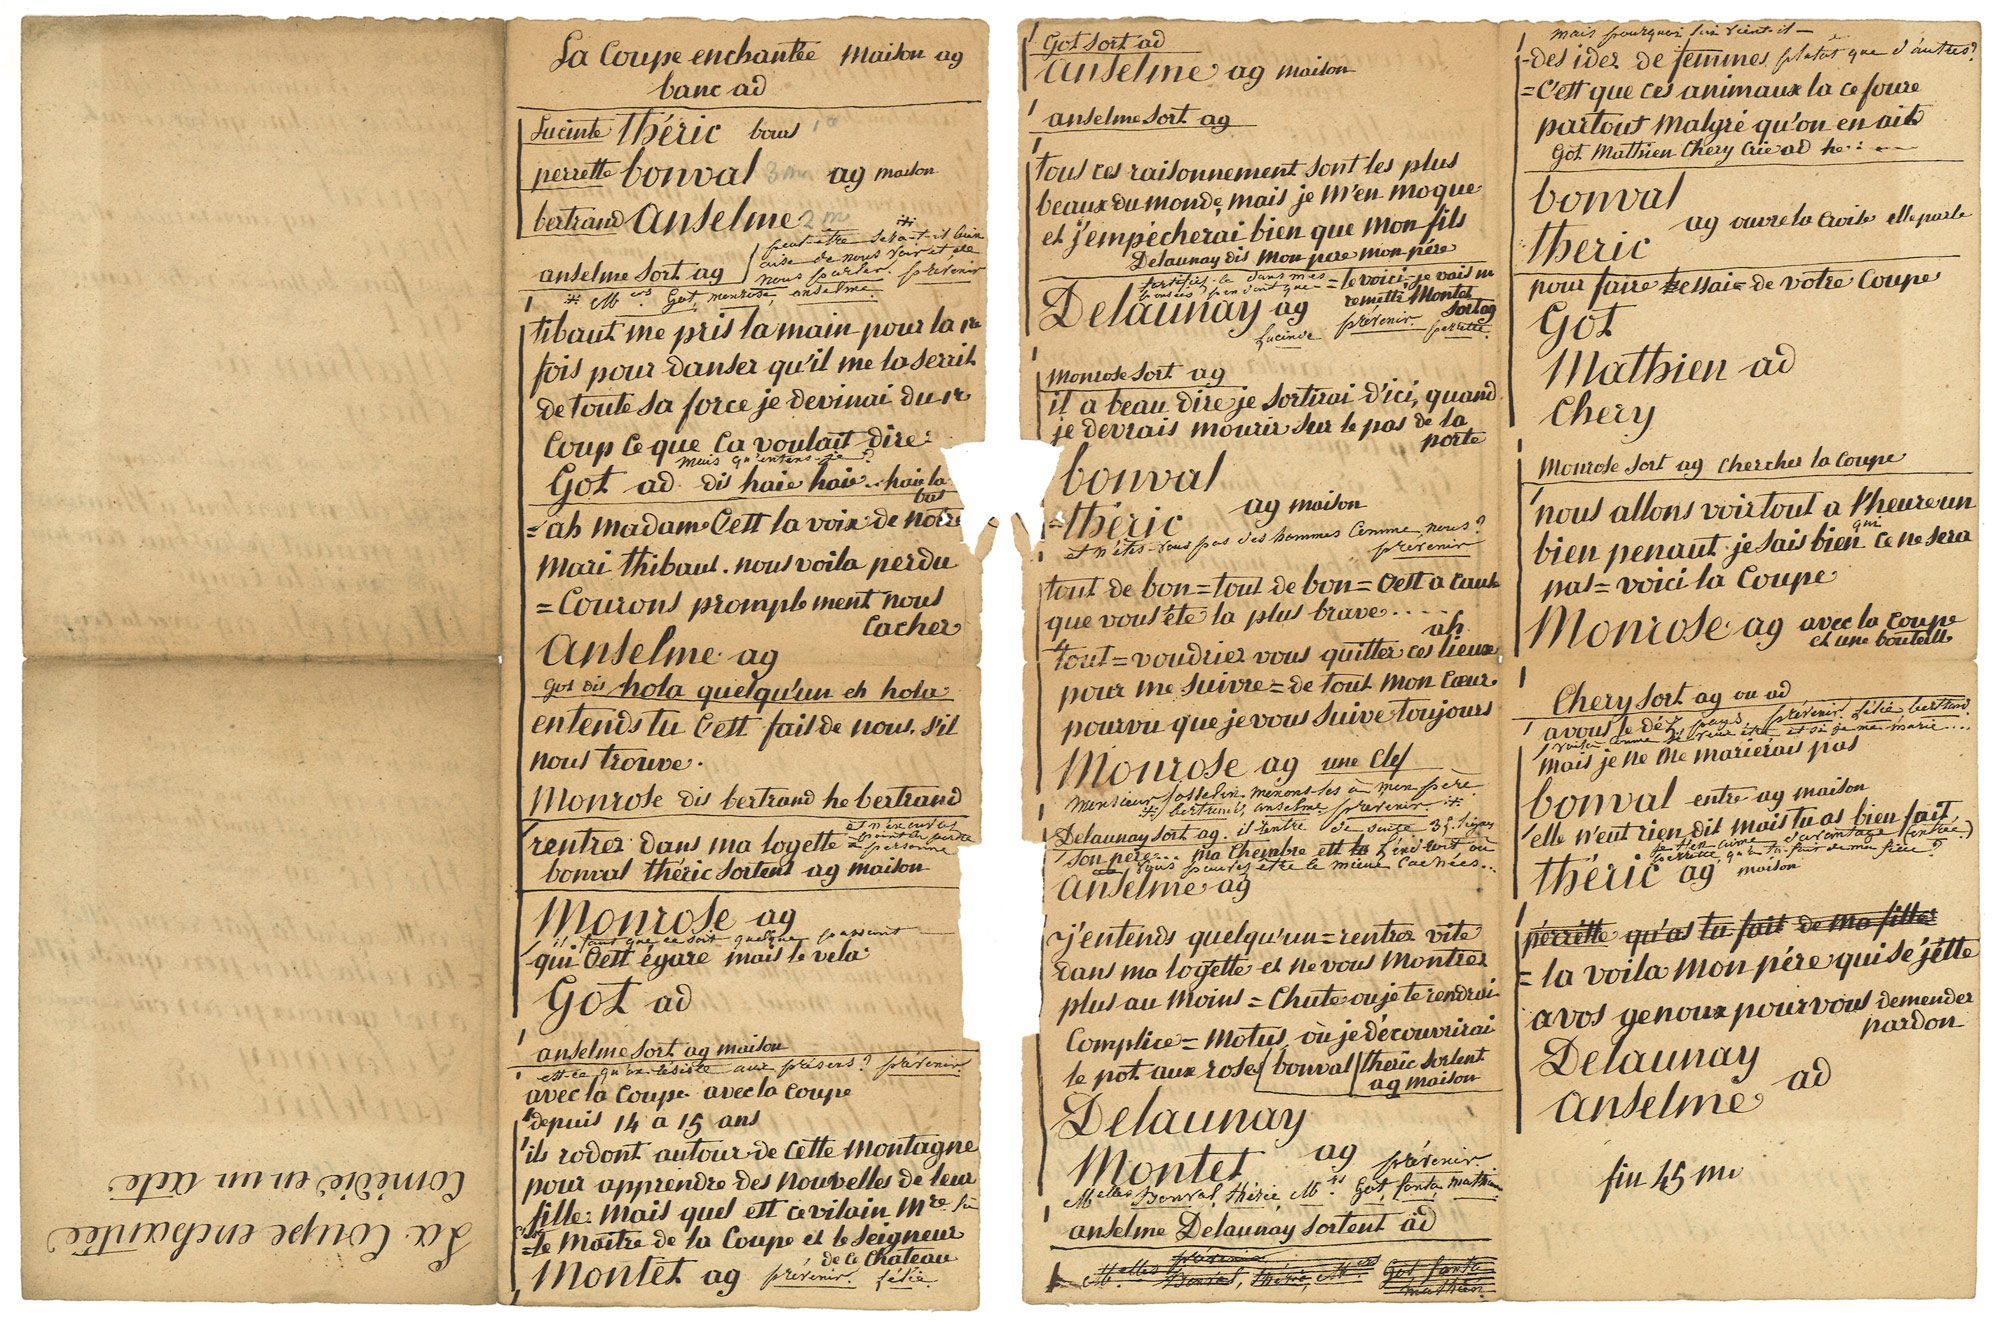 La Coupe enchantée
Comédie en un acte.
La Coupe enchantée Maison ag
banc ad
Lucinte théric bours 1e
perrette bonval 3 m ag maison
bertrand Anselme 2 m
peut-être sera-t-il bien
aise de nous voir et de
anselme sort ag nous parler. prévenir
Mrs Got, monrose, anselme.
tibaut me pris la main pour la 1re
fois pour danser qu'il me la serrit
de toute sa force je devinai du 1r
Coup ce que ça voulait dire
mais qu'entens-je?
Got ad dis haie haie haie la
bas
= ah madame C'est la voix de notre
Mari thibaut. nous voila perdu
= Courons promptement nous
Cacher
Anselme ag
Got dis hola quelqu'un eh hola
entends tu C'est fait de nous, s'il
nous trouve.
Monrose dis bertrand he bertrand
rentrez dans ma logette
personne
bonval théric sortent ag maison
Monrose ag
il faut que ce soit quelque passant
qui C'est égaré mais le vela
Got ad
anselme sort ag maison
est-ce qu'on résiste aux présens? prévenir
avec la Coupe avec la Coupe
depuis 14 a 15 ans
ils rodont autour de cette montagne
pour apprendre des nouvelles de leur
fille: Mais quel est ce vilain Mre
= le Maître de la Coupe et le seigneur
de ce Chateau
Montet ag prévenir. félix.
Got sort ad
Anselme ag maison
anselme sort ag
tous ces raisonnement sont les plus
beaux du monde, mais je m'en moque
et j'empécherai bien que mon fils
Delaunay dis Mon pere mon pére
fortifiez-le dans mes
pensées, pendant que = le voici - je vais m
Delaunay ag remettre Montet
sort ag
Lucinde prévenir. perrette.
Monrose sort ag
il a beau dire je sortirai d'ici, quand
je devrais mourir sur le pas de la
porte
bonval
ag maison
= théric
et n'êtes-vous pas des hommes comme nous?
prévenir
tout de bon = tout de bon = C'est a Cause
que vous éte la plus brave....
ah
tout = voudriez vous quitter ces lieux
pour me suivre = de tout mon Cœur
pourvu que je vous suive toujours
Monrose ag une Clef
Monsieur Josselin, menons-les à mon père.
bertrand, anselme prévenir
Delaunay sort ag. il rentre de suite 35. lignes
son père... ma Chambre est l'endroit où
vous pourrez être le mieux Cachées...
Anselme ag
j'entends quelqu'un = rentrez vite
dans ma logette et ne vous Montrez
plus au moins = Chute ou je te rendrai
Complice = Motus, ou je découvrirai
le pot aux rose bonval théric sortent
ag maison
Delaunay
ag
Montet prévenir.
Melles Bonval, théric, Mrs Got, fonta, mathien
anselme Delaunay sortent ad
prévenir
Melles Bonval, théric, Mrs Got fonta
mathien
Mais pourquoi lui vient-il -
- des idez de femmes plutôt que d'autres?
= C'est que ces animaux la ce foure
partout malgré qu'on en ait
Got Mathien Chery Crie ad he....
bonval
ag ouvre la Croise elle parle
theric
pour faire l'essai = de votre Coupe
Got
Mathien ad
Chery
Monrose sort ag chercher la Coupe
nous allons voir tout a l'heure un
bien penaut. je sais bien qui ce ne sera
pas = voici la Coupe
Monrose ag avec la coupe
et une bouteille
Chery sort ag ou ad
a vous le déz prévenir. félix bertrand.
voilà comme je veux être et si je me marie...
mais je ne me marierais pas
bonval entre ag maison
elle n'eut rien dit mais tu as bien fait
d'avantage (entrée)
perrette, qu'as tu fait de ma fille?
théric ag maison
perrette qu'as tu fait de ma fille
= la voila mon pére qui se jétte
a vos genoux pour vous demender
pardon
Delaunay
ad
Anselme
fin 45 m